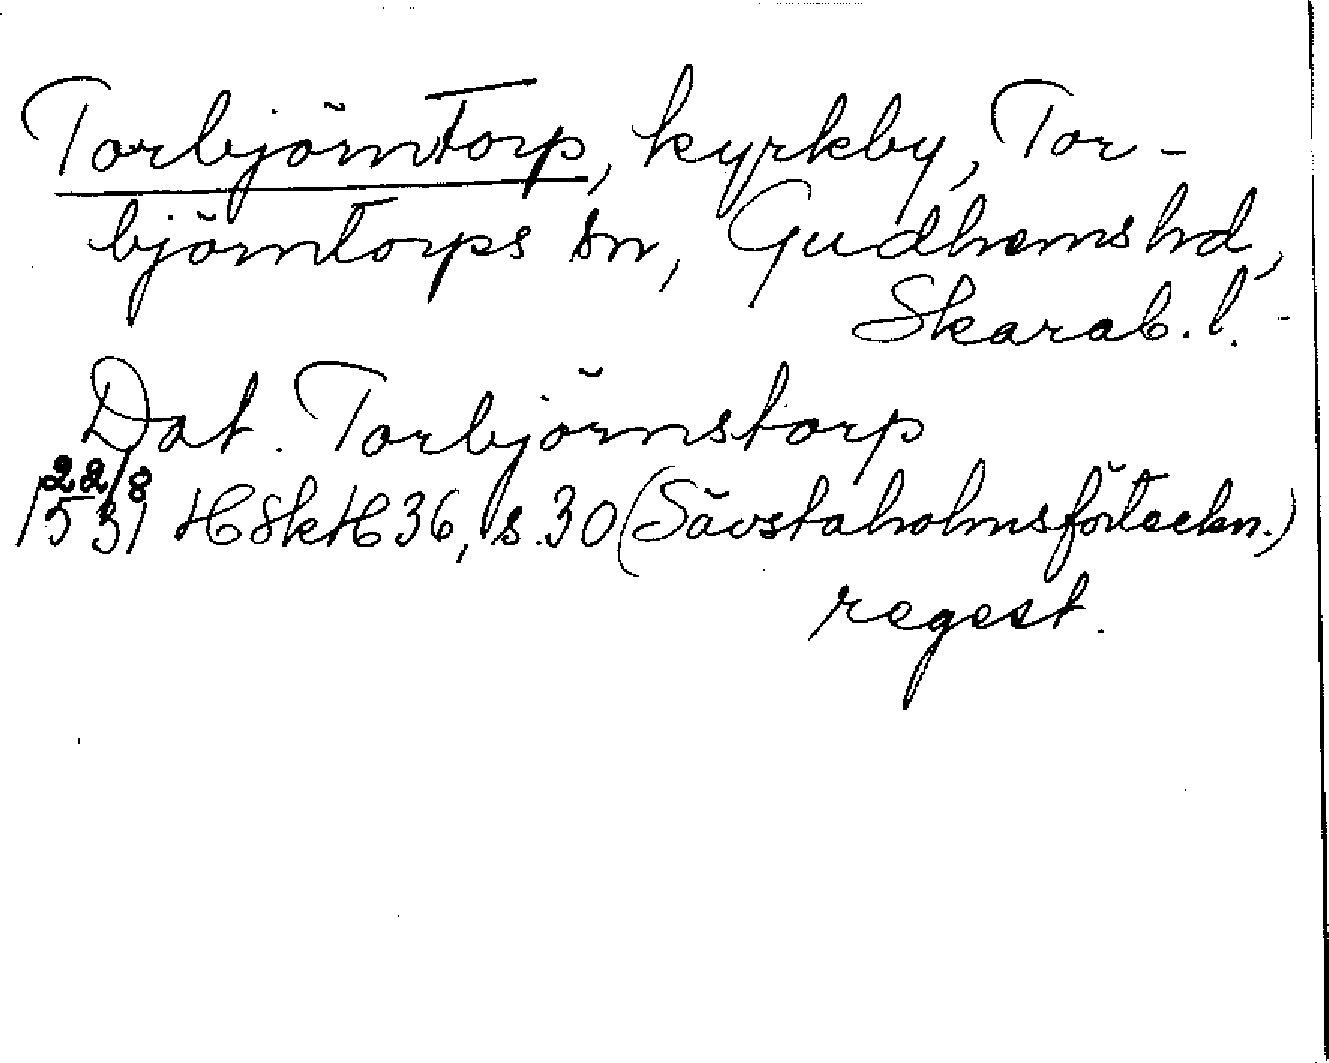 Torbjörntorp, kyrkby, Tor-
björntorps sn, Gudhems hd,
Skarab. l.
Dat. Torbjörnstorp
22/8
1531 HSkH 36, s. 30 (Sävstaholmsförteckn.)
regest.